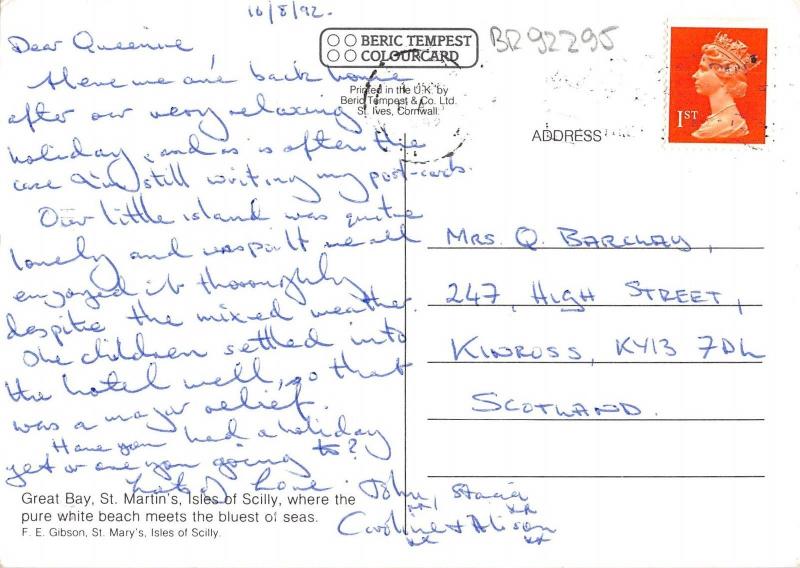 16/8/92.
Dear Queenie,
Here we are back home
after our very relaxing
holiday, and as is often the
case I'm still writing my post-cards.
Our little island was quite
lovely and unspoilt we all
enjoyed it thoroughly
despite the mixed weather.
The children settled into
the hotel well, so that
was a major relief.
Have you had a holiday
yet or are you going to?
Lots of Love John, Stacia
xx xx
Caroline + Alison
xx xx
Great Bay, St. Martin's, Isles of Scilly, where the
pure white beach meets the bluest of seas.
F. E. Gibson, St. Mary's, Isles of Scilly.
BERIC TEMPEST
COLOURCARD
Printed in the U.K. by
Beric Tempest & Co. Ltd.
St. Ives, Cornwall.
BR92295
1ST
ADDRESS
MRS. Q. BARCLAY,
247, HIGH STREET,
KINROSS, KY13 7DL
SCOTLAND.